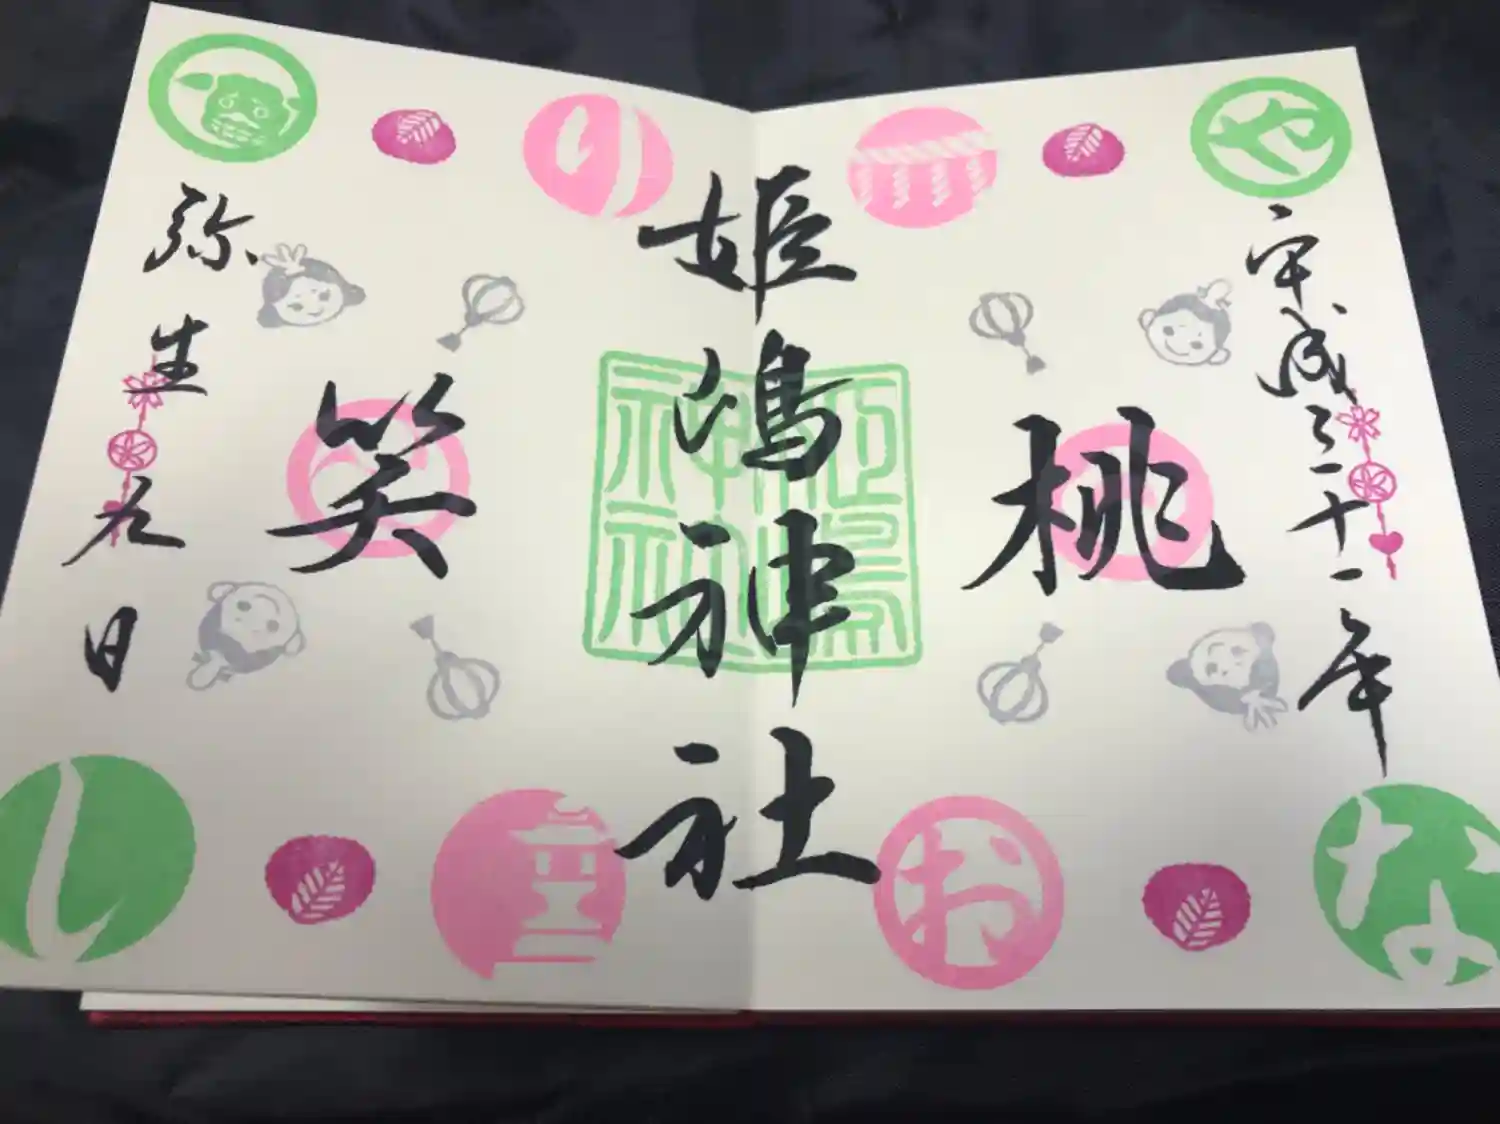 平成三十一年
桃
姫嶋神社
笑
弥生九日
や
な
お
の
し
姫嶋
神社